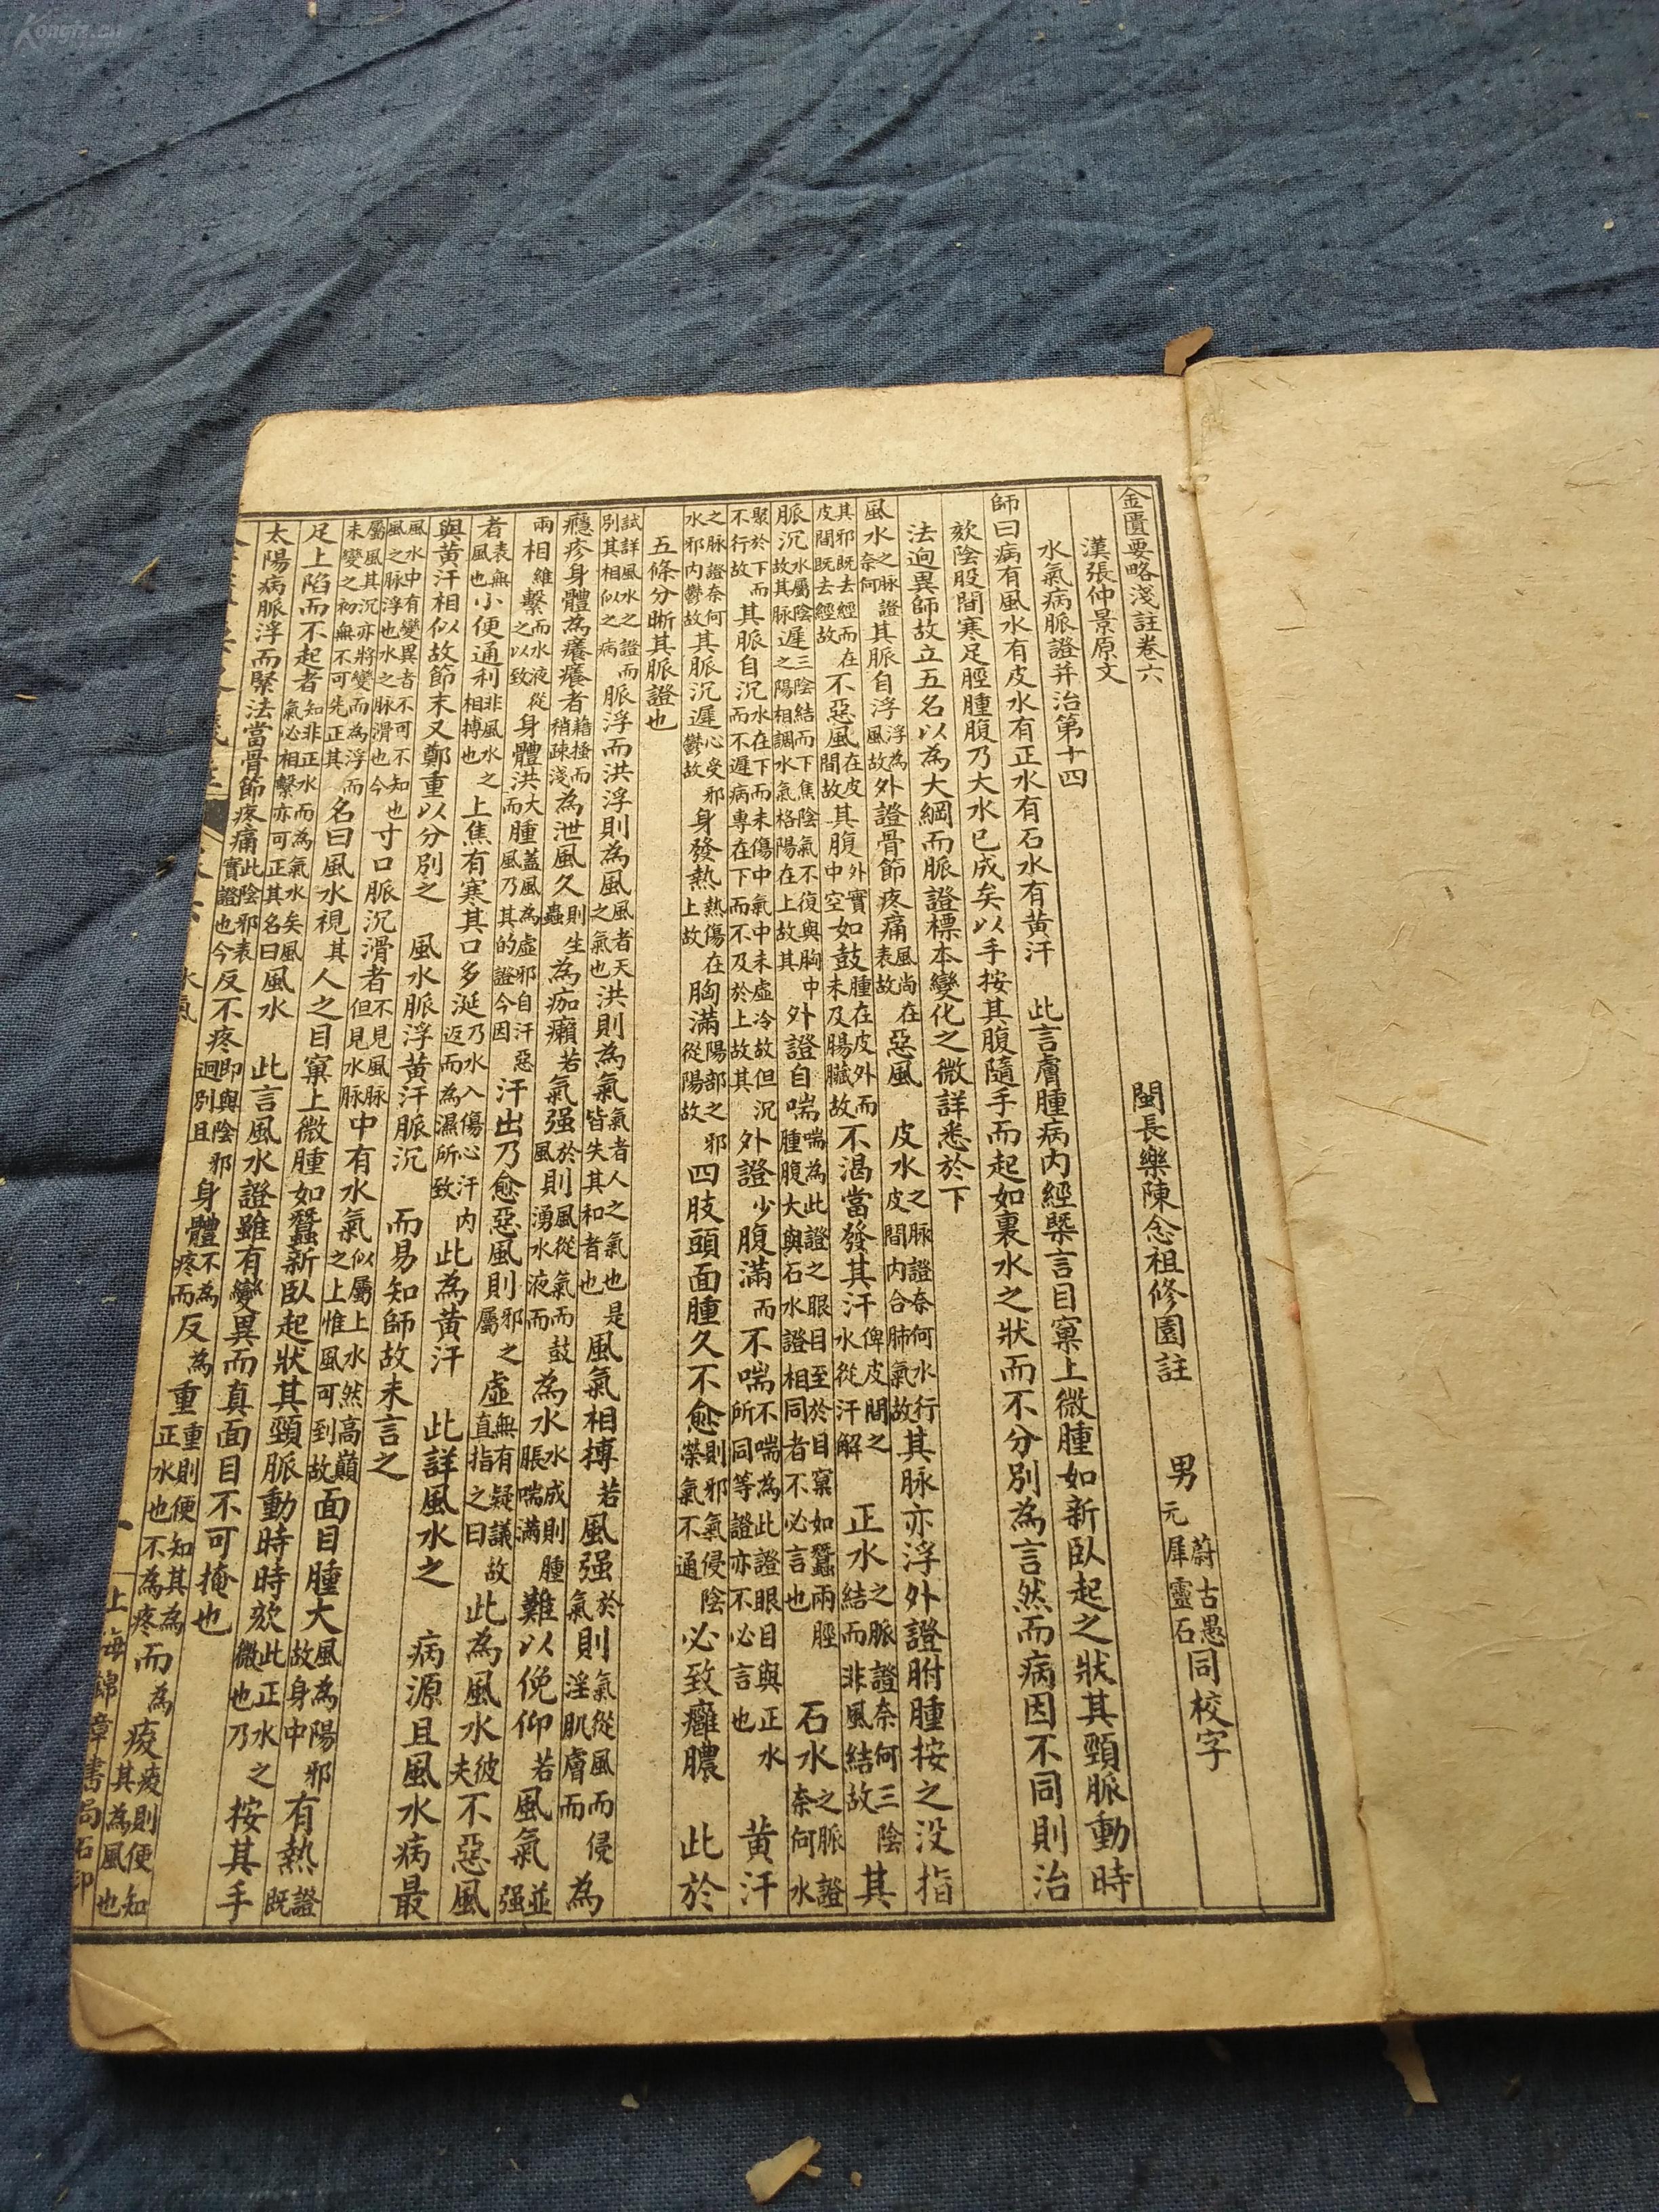 金匱要略淺註卷六
漢張仲景原文　閩長樂陳念祖修園註　男蔚古愚元犀靈石同校字
水氣病脈證并治第十四
師曰病有風水有皮水有正水有石水有黃汗　此言膚腫病內經槩言目窠上微腫如新臥起之狀其頸脈動時
欬陰股間寒足脛腫腹乃大水已成矣以手按其腹隨手而起如裹水之狀而不分別為言然而病因不同則治
法逈異師故立五名以為大綱而脈證標本變化之微詳悉於下
風水之脈證奈何其脈自浮浮為風故外證骨節疼痛風尚在表故惡風　皮水之脉證奈何水行皮間內合肺氣故其脉亦浮外證胕腫按之没指
其邪既去經而在皮間既去經故不惡風在皮間故其腹外實中空如鼓腫在皮外而未及腸臟故不渴當發其汗俾皮間之水從汗解　正水之脈證奈何三陰結而非風結故其
脈沉水屬陰故其脈遲三陰結而下焦陰氣不復與胸中之陽相調水氣格陽在上故其外證自喘喘為此證之眼目至於目窠如蠶兩脛腫腹大與石水證相同者不必言也　石水之脈證奈何水
聚於下而不行故其脈自沉水在下而未傷中氣中未虛冷故但沉而不遲病專在下而不及於上故其外證少腹滿而不喘不喘為此證眼目與正水所同等證亦不必言也　黃汗
之脈證奈何水邪內鬱故其脈沉遲心受邪鬱故身發熱熱傷在上故胸滿陽部之邪從陽故四肢頭面腫久不愈則邪氣侵陰榮氣不通必致癰膿　此於
五條分晰其脈證也
試詳風水之證而別其相似之病脈浮而洪浮則為風風者天之氣也洪則為氣氣者人之氣也是皆失其和者也風氣相搏若風强於氣則氣從風而侵淫肌膚而為
癮疹身體為癢癢者藉搔而稍疎淺為泄風久則生蟲為痂癩若氣强於風則風從氣而鼓湧水液而為水水成則腫脹喘滿難以俛仰若風氣並强
兩相維繫而水液從之以致身體洪大而腫蓋風為虛邪自汗惡風乃其的證今因汗出乃愈惡風則邪之屬虛無有疑議故直指之曰此為風水彼夫不惡風
者表無風也小便通利非風水之相搏也上焦有寒其口多涎乃水入傷心汗內返而為濕所致此為黃汗　此詳風水之病源且風水病最
與黃汗相似故節末又鄭重以分別之　風水脈浮黃汗脈沉而易知師故未言之
風水中有變異者不可不知也風之脈浮也水之脈滑也今寸口脈沉滑者不見風脈但見水脈中有水氣似屬上水然高巔之上惟風可到故面目腫大風為陽邪故身中有熱證既
屬風其沉亦將變而為浮而未變之初無不可先正其名曰風水視其人之目窠上微腫如蠶新臥起狀其頸脈動時時欬此正水之微也乃按其手
足上陷而不起者知非正水而為氣水矣風氣必相繫亦可正其名曰風水　此言風水證雖有變異而真面目不可掩也
太陽病脈浮而緊法當骨節疼痛此陰邪表實證也今反不疼即與陰邪迥別且身體不為疼而反為重重則便知其為正水也不為疼而為痠痠則便知其為風也
水氣
上海錦章書局石印